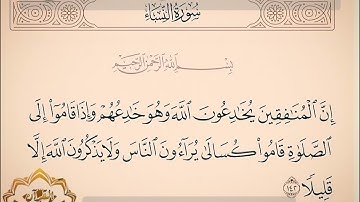 سُورَةُ النِّسَاءِ
بِسْمِ اللَّهِ الرَّحْمَٰنِ الرَّحِيمِ
إِنَّ ٱلْمُنَـٰفِقِينَ يُخَـٰدِعُونَ ٱللَّهَ وَهُوَ خَـٰدِعُهُمْ وَإِذَا قَامُوٓا۟ إِلَى
ٱلصَّلَوٰةِ قَامُوا۟ كُسَالَىٰ يُرَآءُونَ ٱلنَّاسَ وَلَا يَذْكُرُونَ ٱللَّهَ إِلَّا
قَلِيلًا ١٤٢